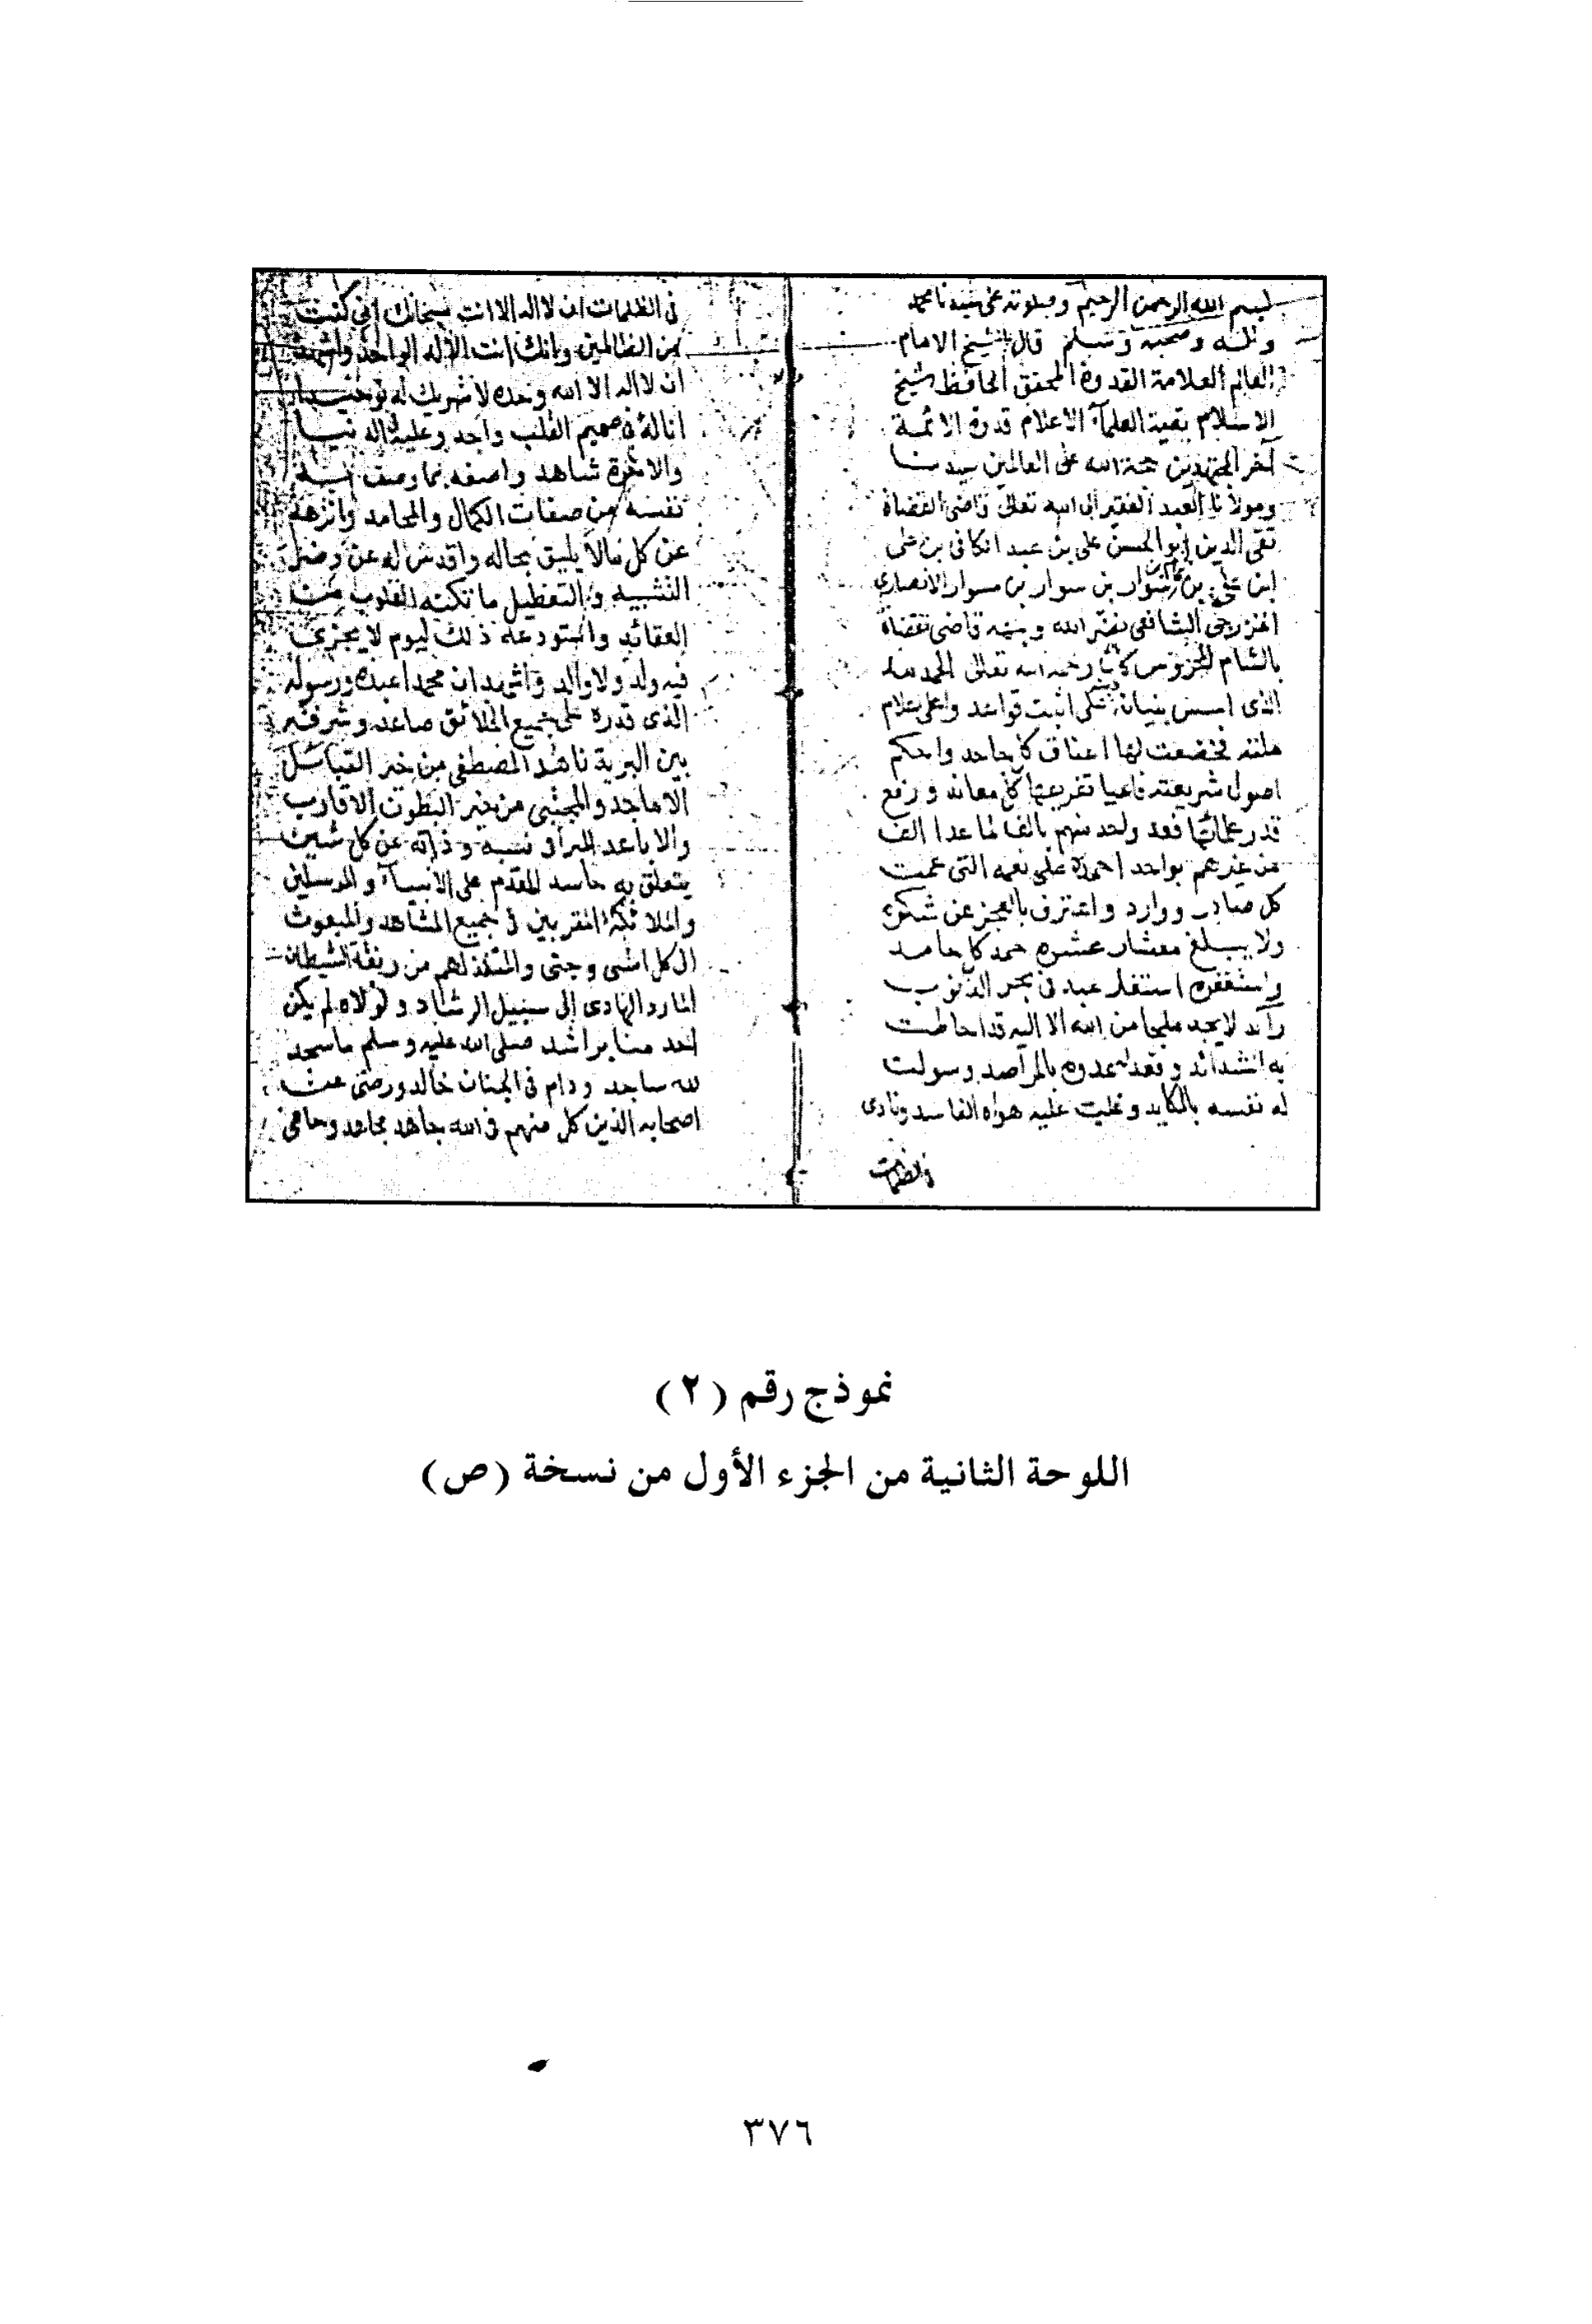 بسم الله الرحمن الرحيم وصلوته على سيدنا محمد
وآله وصحبه وسلم قال الشيخ الامام
العالم العلامة القدوة المحقق الحافظ شيخ
الاسلام بقية العلمآء الاعلام قدوة الائمة
آخر المجتهدين حجة الله على العالمين سيدنا
ومولانا العبد الفقير الى الله تعالى قاضى القضاة
تقى الدين ابو الحسن على بن عبد الكافى بن على
ابن على بن سوار بن سوار بن مسوار الانصارى
الخزرجى الشافعى الله قاضى قضاة
بالشام المحروس كان رحمه الله تعالى الحمد لله
الذى اسس بنيان دينه على اثبت قواعد واعلى علام
ملته فخضعت لها اعناق كل جاحد واحكم
اصول شريعته فاعيا تفريعها كل معاند ورفع
قدر علمائها فعد واحد منهم بالف لما عدا الف
من غيرهم بواحد احمده على نعمه التى عمت
كل صادر ووارد واعترف بالعجز عن شكره
ولا يبلغ معشار عشره حمد كل حامد
واستغفره استغفار عبد فى بحر الذنوب
رآند لا يجد ملجا من الله الا اليه قد احاطت
به الشدائد وقعد له عدوه بالمراصد وسولت
له نفسه بالمكايد وغلبت عليه هواه الفاسد ونادى
فى الظلمات
فى الظلمات ان لا اله الا انت سبحانك انى كنت
من الظالمين وبانك انت الاله الواحد واشهد
ان لا اله الا الله وحده لا شريك له توحيدا
اناله فى صميم القلب واجد وعليه فى الدنيا
والاخرة شاهد واصفه بما وصف به
نفسه من صفات الكمال والمحامد وانزهه
عن كل ما لا يليق بجاله واقدس له عن وضر
التشبيه والتعطيل ما تكنه القلوب من
العقائد واستودعه ذلك ليوم لا يجزى
فيه ولد ولا والد واشهد ان محمدا عبده ورسوله
الذى قدره على جميع الخلائق صاعد وشرفه
بين البرية ناهد المصطفى من خير القبائل
الاماجد والمجتبى من خير البطون الاقارب
والاباعد المبرا فى نسبه وذاته عن كل شين
يتعلق به حاسد المقدم على الانبيآء والمرسلين
والملائكة المقربين فى جميع المشاهد والمبعوث
الى كل انسى وجنى والمنقذ لهم من ربقة الشيطان
المارد الهادى الى سبيل الرشاد ولولاه لم يكن
احد منا براشد صلى الله عليه وسلم ما سجد
لله ساجد ودام فى الجنان خالد ورضى عن
اصحابه الذين كل منهم فى الله جاهد مجاهد وحامى
نموذج رقم (٢)
اللوحة الثانية من الجزء الأول من نسخة (ص)
٣٧٦